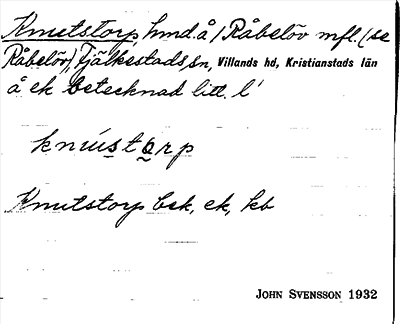 Knutstorp, hmd. å / Råbelöv mfl. (se
Råbelöv), Fjälkestads sn, Villands hd, Kristianstads län
å ek betecknad litt. l'
knuستorp
Knutstorp bsk, ek, kb
JOHN SVENSSON 1932